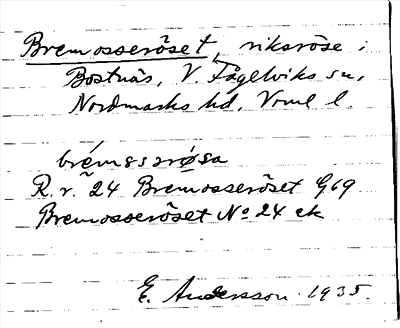 Bremosseröset, riksröse i
Bostnäs, V. Fågelviks sn,
Nordmarks hd, Vrml l.
brémssrø̀sa
R. r. 24 Bremosseröset G69
Bremosseröset No 24 ek
E. Andersson 1935.